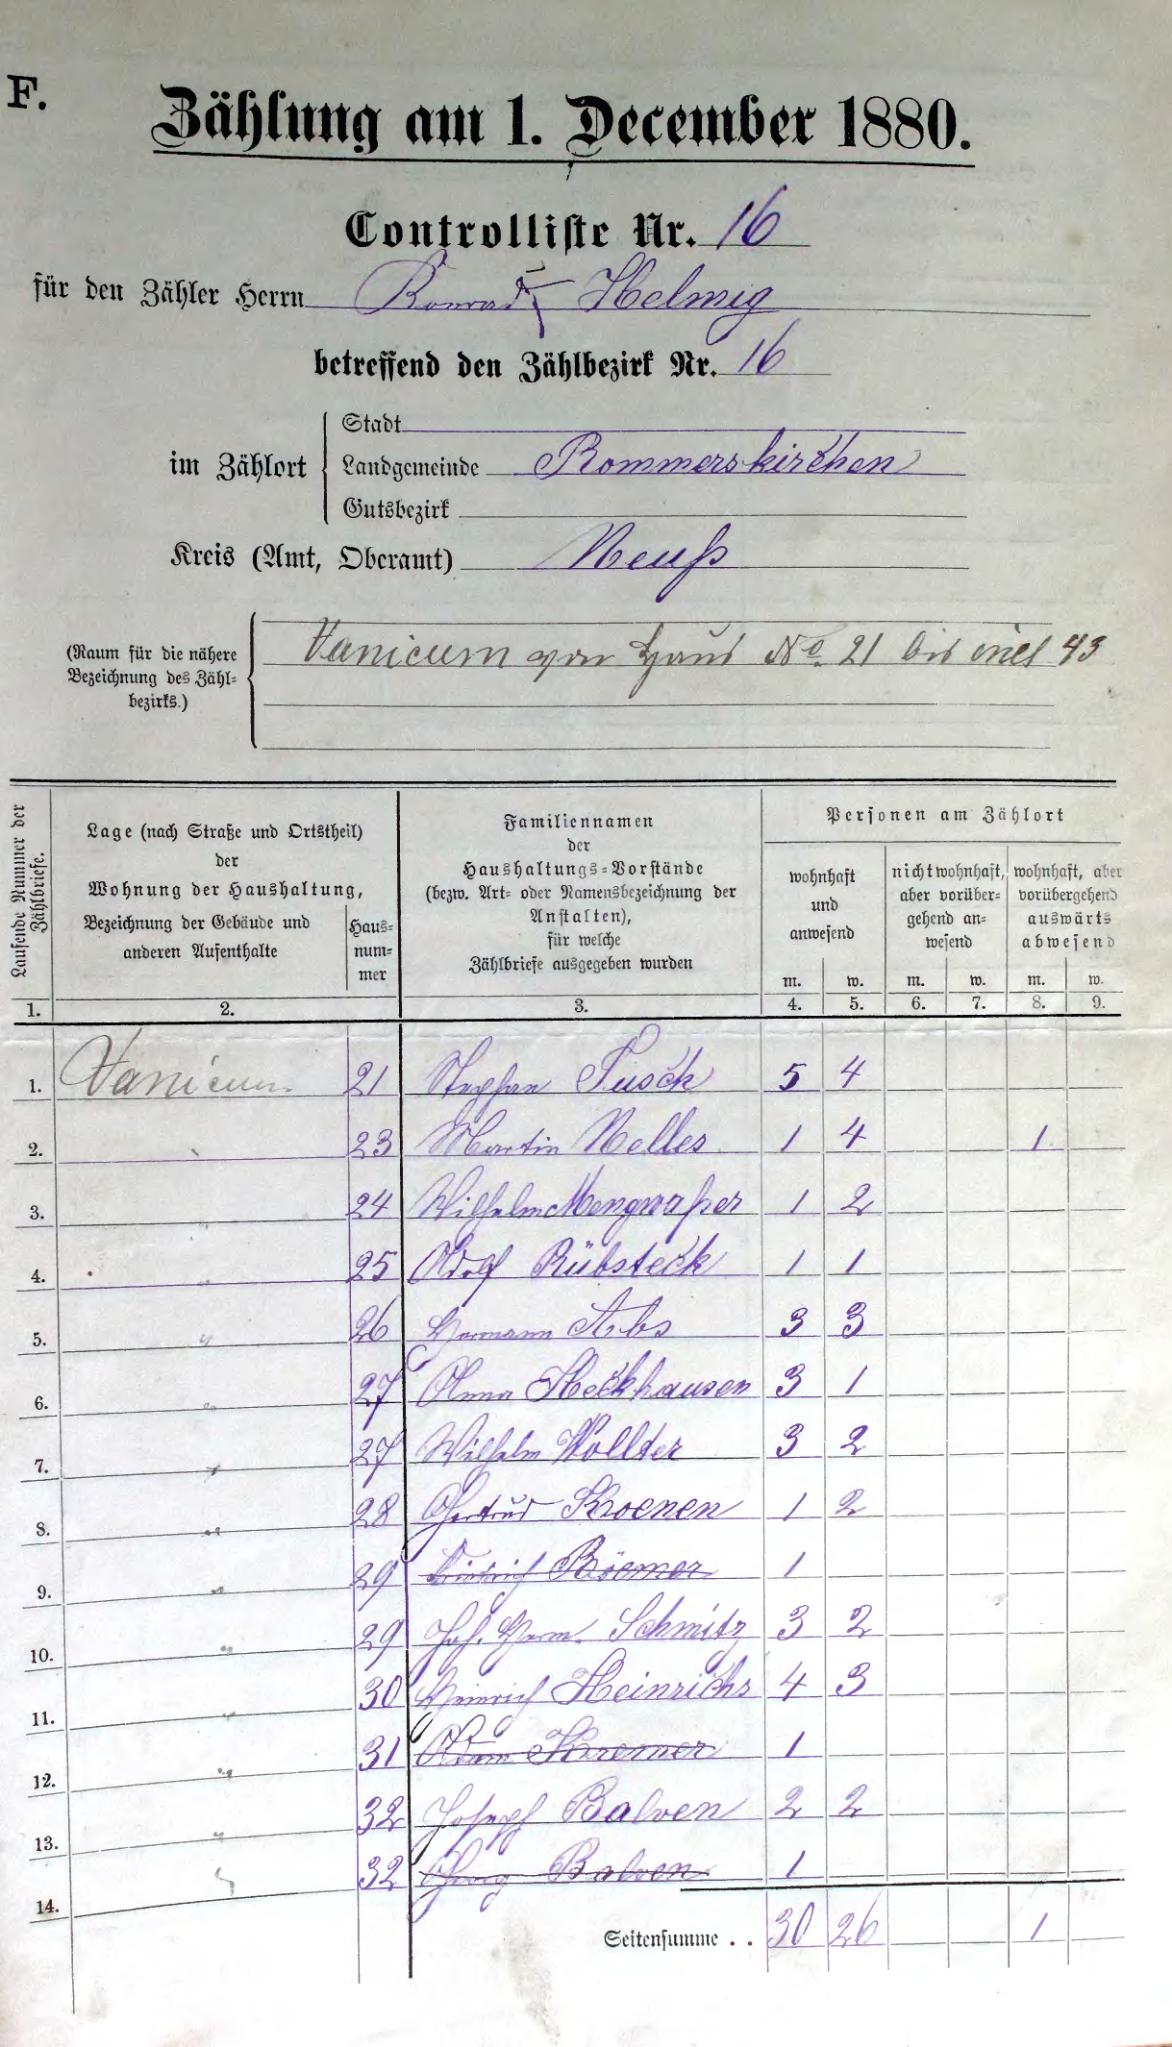 F.
Zählung am 1. December 1880.
Controlliste Nr. 16
für den Zähler Herrn Konrad Helmig
betreffend den Zählbezirk Nr. 16
im Zählort
Stadt
Landgemeinde Rommerskirchen
Gutsbezirk
Kreis (Amt, Oberamt) Neuß
(Raum für die nähere Bezeichnung des Zähl-
bezirks.)
Vanicum von Haus No. 21 bis incl 43
Laufende Nummer der Zählbriefe.
Lage (nach Straße und Ortstheil)
der
Wohnung der Haushaltung,
Bezeichnung der Gebäude und
anderen Aufenthalte
Haus-
num-
mer
Familiennamen
der
Haushaltungs-Vorstände
(bezw. Art- oder Namensbezeichnung der
Anstalten),
für welche
Zählbriefe ausgegeben wurden
Personen am Zählort
wohnhaft
und
anwesend
nicht wohnhaft,
aber vorüber-
gehend an-
wesend
wohnhaft, aber
vorübergehend
auswärts
abwesend
m. w. m. w. m. w.
1. 2. 3. 4. 5. 6. 7. 8. 9.
1. Vanicum 21 Stephan Fusck 5 4
2. " 23 Martin Nelles 1 4 1
3. " 24 Wilhelm Mengwaßer 1 2
4. " 25 Adolf Rübsteck 1 1
5. " 26 Hermann Abs 3 3
6. " 27 Anna Heckhausen 3 1
7. " 27 Wilhelm Wollter 3 2
8. " 28 Gertrud Kroenen 1 2
9. " 29 Friedrich Böemer 1
10. " 29 Joh. Herm. Schmitz 3 2
11. " 30 Heinrich Heinrichs 4 3
12. " 31 Adam Kremer 1
13. " 32 Joseph Balven 2 2
14. " 32 Georg Balven 1
Seitensumme . . 30 26 1